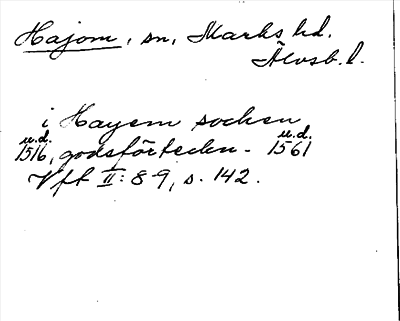 Hajom, sn, Marks hd.
Älvsb. l.
i Hayem socken
u.d. u.d.
1516, godsförteckn. 1561
Vft II: 8-9, s. 142.